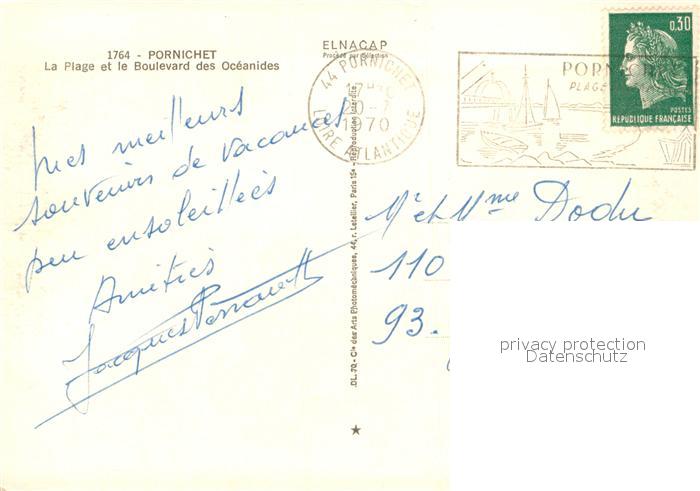 1764 - PORNICHET
La Plage et le Boulevard des Océanides
ELNACAP
Procédé par Sélection
44 PORNICHET
20-7
1970
LOIRE ATLANTIQUE
PORNICHET
PLAGE
0,30
POSTES
RÉPUBLIQUE FRANÇAISE
Mes meilleurs
souvenirs de vacances
peu ensoleillées
Amitiés
Jacques
DL.70.- Cie des Arts Photomécaniques, 44, r. Letellier, Paris 15e - Reproduction interdite
Mr et Mme Dodu
110
93.
privacy protection
Datenschutz